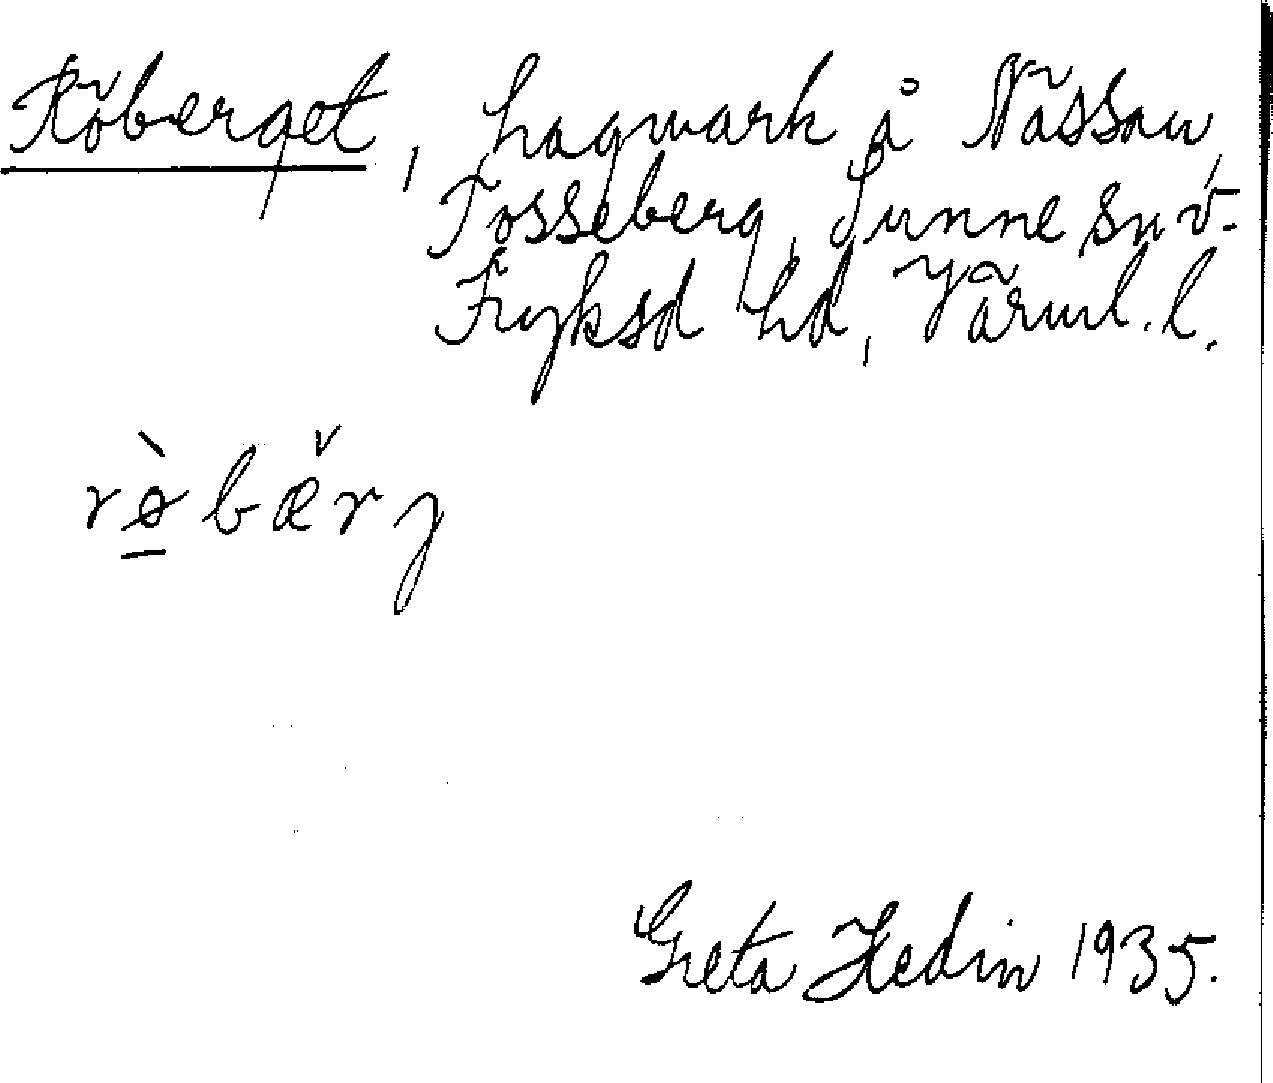 Röberget, hagmark å Nässan,
Tosseberg, Sunne sn ö.
Fryksd hd, Värml. l.
rø̀bæ̌rj
Greta Hedin 1935.